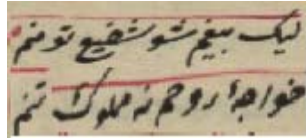 لیک بیغم شو شفیع تو منم
خواجهٔ روحم نه مملوک تنم